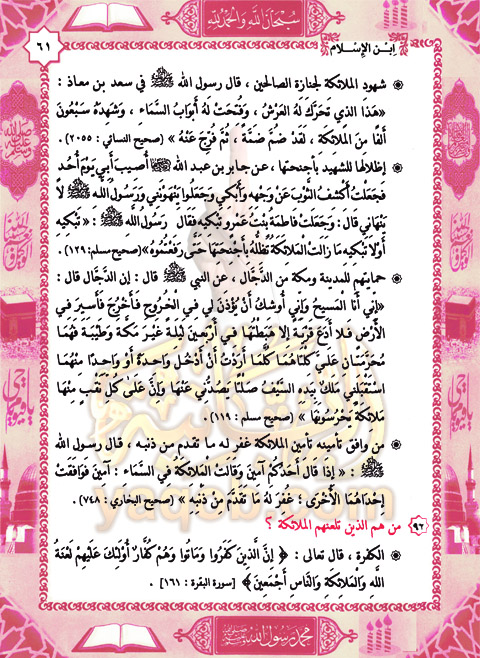 سبحان الله والحمد لله
ابن الإسلام
٦١
شهود الملائكة لجنازة الصالحين ، قال رسول الله ﷺ في سعد بن معاذ :
«هَذَا الذي تَحَرَّكَ لَهُ العَرْشُ ، وَفُتِحَتْ لَهُ أَبْوَابُ السَّمَاءِ ، وَشَهِدَهُ سَبْعُونَ
أَلْفًا مِنَ المَلَائِكَةِ ، لَقَدْ ضُمَّ ضَمَّةً ، ثُمَّ فُرِّجَ عَنْهُ » (صحيح النسائي : ٢٠٥٥) .
إظلالها للشهيد بأجنحتها ، عن جابر بن عبد الله ﷺ أُصيبَ أَبي يَوْمَ أُحُد
فَجَعَلْتُ أَكْشِفُ الثَّوْبَ عَنْ وَجْهِهِ وَأَبْكي وَجَعَلُوا يَنْهَوْنَني وَرَسُولُ اللهِ ﷺ لاَ
يَنْهَاني قَالَ : وَجَعَلَتْ فَاطِمَةُ بِنْتُ عَمْرٍو تَبْكِيهِ فَقَالَ رَسُولُ اللهِ ﷺ : « تَبْكِيهِ
أَوْ لاَ تَبْكِيهِ مَا زَالَتْ المَلاَئِكَةُ تُظِلُّهُ بِأَجْنِحَتِهَا حَتَّى رَفَعْتُمُوهُ»(صحيح مسلم: ١٢٩).
حمايتهم للمدينة ومكة من الدَّجَّال ، عن النبي ﷺ قال : إن الدَّجَّال قال :
«إِنِّي أَنَا المَسيحُ وَإِنِّي أُوشِكُ أَنْ يُؤْذَنَ لي في الْخُرُوجِ فَأَخْرُجَ فَأَسيرَ في
الأَرْضِ فَلاَ أَدَعَ قَرْيَةً إِلاَّ هَبَطْتُهَا في أَرْبَعينَ لَيْلَةً غَيْرَ مَكَّةَ وَطَيْبَةَ فَهُمَا
مُحَرَّمَتَانِ عَلَيَّ كِلْتَاهُمَا كُلَّمَا أَرَدْتُ أَنْ أَدْخُلَ وَاحِدَةً أَوْ وَاحِدًا مِنْهُمَا
اسْتَقْبَلَني مَلَكٌ بِيَدِهِ السَّيْفُ صَلْتًا يَصُدُّني عَنْهَا وَإِنَّ عَلَى كُلِّ نَقْبٍ مِنْهَا
مَلاَئِكَةً يَحْرُسُونَهَا » (صحيح مسلم : ١١٩) .
من وافق تأمينه تأمين الملائكة غفر له ما تقدم من ذنبه ، قال رسول الله
ﷺ : « إِذَا قَالَ أَحَدُكُمْ آمينَ وَقَالَتْ المَلاَئِكَةُ في السَّمَاءِ : آمينَ فَوَافَقَتْ
إِحْدَاهُمَا الأُخْرَى ؛ غُفِرَ لَهُ مَا تَقَدَّمَ مِنْ ذَنْبِهِ » (صحيح البخاري : ٧٤٨) .
٩٢ من هم الذين تلعنهم الملائكة ؟
الكفرة ، قال تعالى : ﴿ إِنَّ الَّذِينَ كَفَرُوا وَمَاتُوا وَهُمْ كُفَّارٌ أُوْلَئِكَ عَلَيْهِمْ لَعْنَةُ
اللَّهِ وَالْمَلَائِكَةِ وَالنَّاسِ أَجْمَعِينَ ﴾ [سورة البقرة : ١٦١] .
محمد رسول الله ﷺ